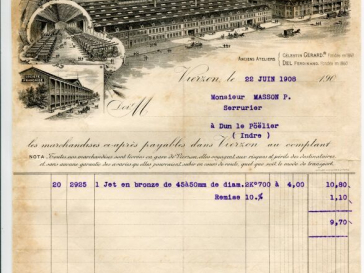 ANCIENS ATELIERS CÉLESTIN GÉRARD
DEL FERDINAND
Vierzon, le 22 JUIN 1908 190
Doit M
Monsieur MASSON P.
Serrurier
à Dun le Poëlier
( Indre )
les marchandises ci-après payables dans Vierzon au comptant
NOTA : Toutes nos marchandises sont livrées en gare de Vierzon, elles voyagent aux risques et périls des destinataires,
et sans aucune garantie des avaries qu'elles pourraient subir en cours de route, quel que soit le mode de transport.
20 2925 1 Jet en bronze de 45à50mm de diam. 2K°700 à 4,00 10,80
Remise 10.% 1,10
9,70